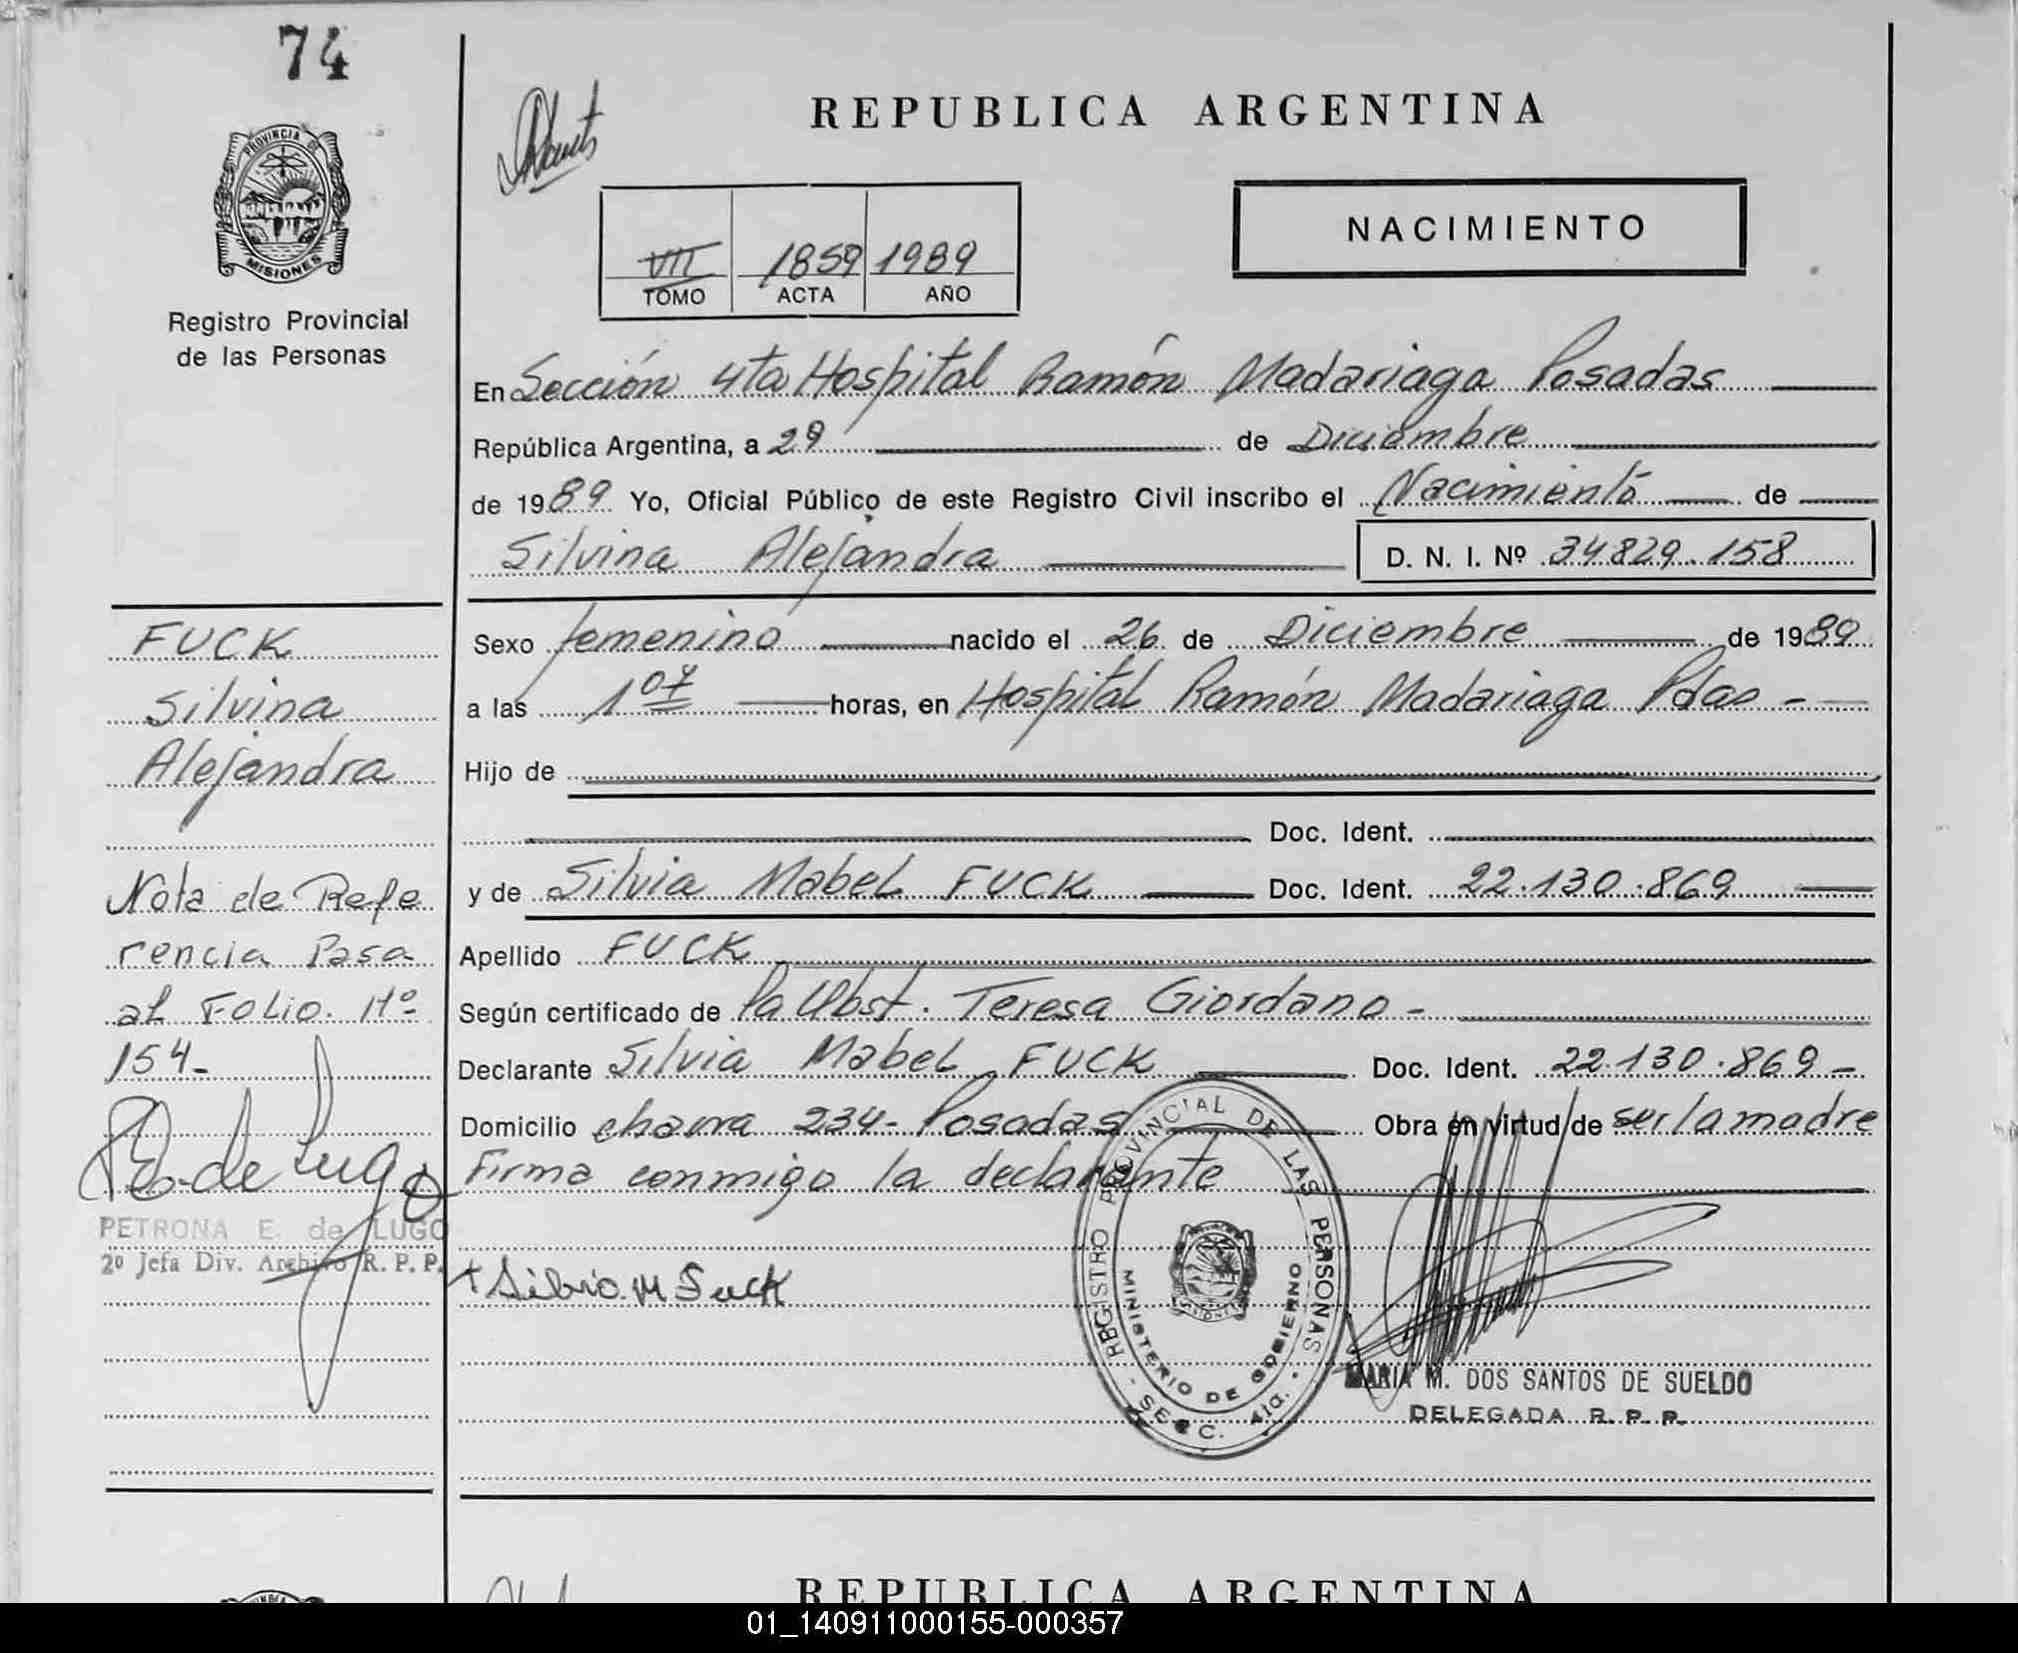 74
PROVINCIA DE
MISIONES
Registro Provincial
de las Personas
REPUBLICA ARGENTINA
NACIMIENTO
VII 1859 1989
TOMO ACTA AÑO
En Sección 4ta Hospital Ramón Madariaga Posadas
República Argentina, a 29 de Diciembre
de 1989 Yo, Oficial Público de este Registro Civil inscribo el Nacimiento de
Silvina Alejandra D. N. I. Nº 34829.158
Sexo femenino nacido el 26 de Diciembre de 1989
a las 1 07 horas, en Hospital Ramón Madariaga Pdas -
Hijo de
Doc. Ident.
y de Silvia Mabel FUCK Doc. Ident. 22.130.869
Apellido FUCK
Según certificado de Pa Obst. Teresa Giordano -
Declarante Silvia Mabel FUCK Doc. Ident. 22.130.869 -
Domicilio chacra 234- Posadas Obra en virtud de ser la madre
Firma conmigo la declarante
FUCK
Silvina
Alejandra
Nota de Refe
rencia Pasa
al Folio. Nº
154-
P E de Lugo
PETRONA E. de LUGO
2º Jefa Div. Archivo R. P. P.
+ Silvia M Fuck
REGISTRO PROVINCIAL DE LAS PERSONAS
MINISTERIO DE GOBIERNO
- SECC. 4ta. -
MARIA M. DOS SANTOS DE SUELDO
DELEGADA R. P. P.
REPUBLICA ARGENTINA
01_140911000155-000357